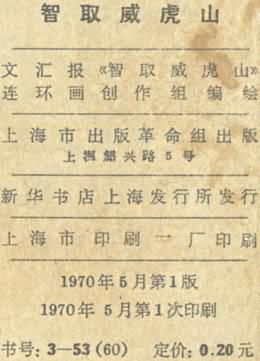 智取威虎山
文汇报《智取威虎山》
连环画创作组编绘
上海市出版革命组出版
上海绍兴路5号
新华书店上海发行所发行
上海市印刷一厂印刷
1970年5月第1版
1970年5月第1次印刷
书号：3—53(60) 定价：0.20元